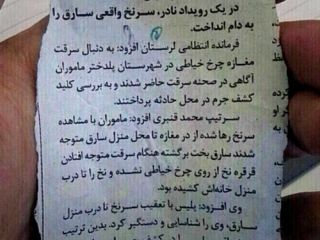 در یک رویداد نادر، سرنخ واقعی سارق را
به دام انداخت.
فرمانده انتظامی لرستان افزود: به دنبال سرقت
مغازه چرخ خیاطی در شهرستان پلدختر ماموران
آگاهی در صحنه سرقت حاضر شدند و به بررسی کلید
کشف جرم در محل حادثه پرداختند.
سرتیپ محمد قنبری افزود: ماموران با مشاهده
سرنخ رها شده از در مغازه تا محل منزل سارق متوجه
شدند سارق بخت برگشته هنگام سرقت متوجه افتادن
قرقره نخ از روی چرخ خیاطی نشده و نخ را تا درب
منزل خانه‌اش کشیده بود.
وی افزود: پلیس با تعقیب سرنخ تا درب منزل
سارق، وی را شناسایی و دستگیر کرد. بدین ترتیب